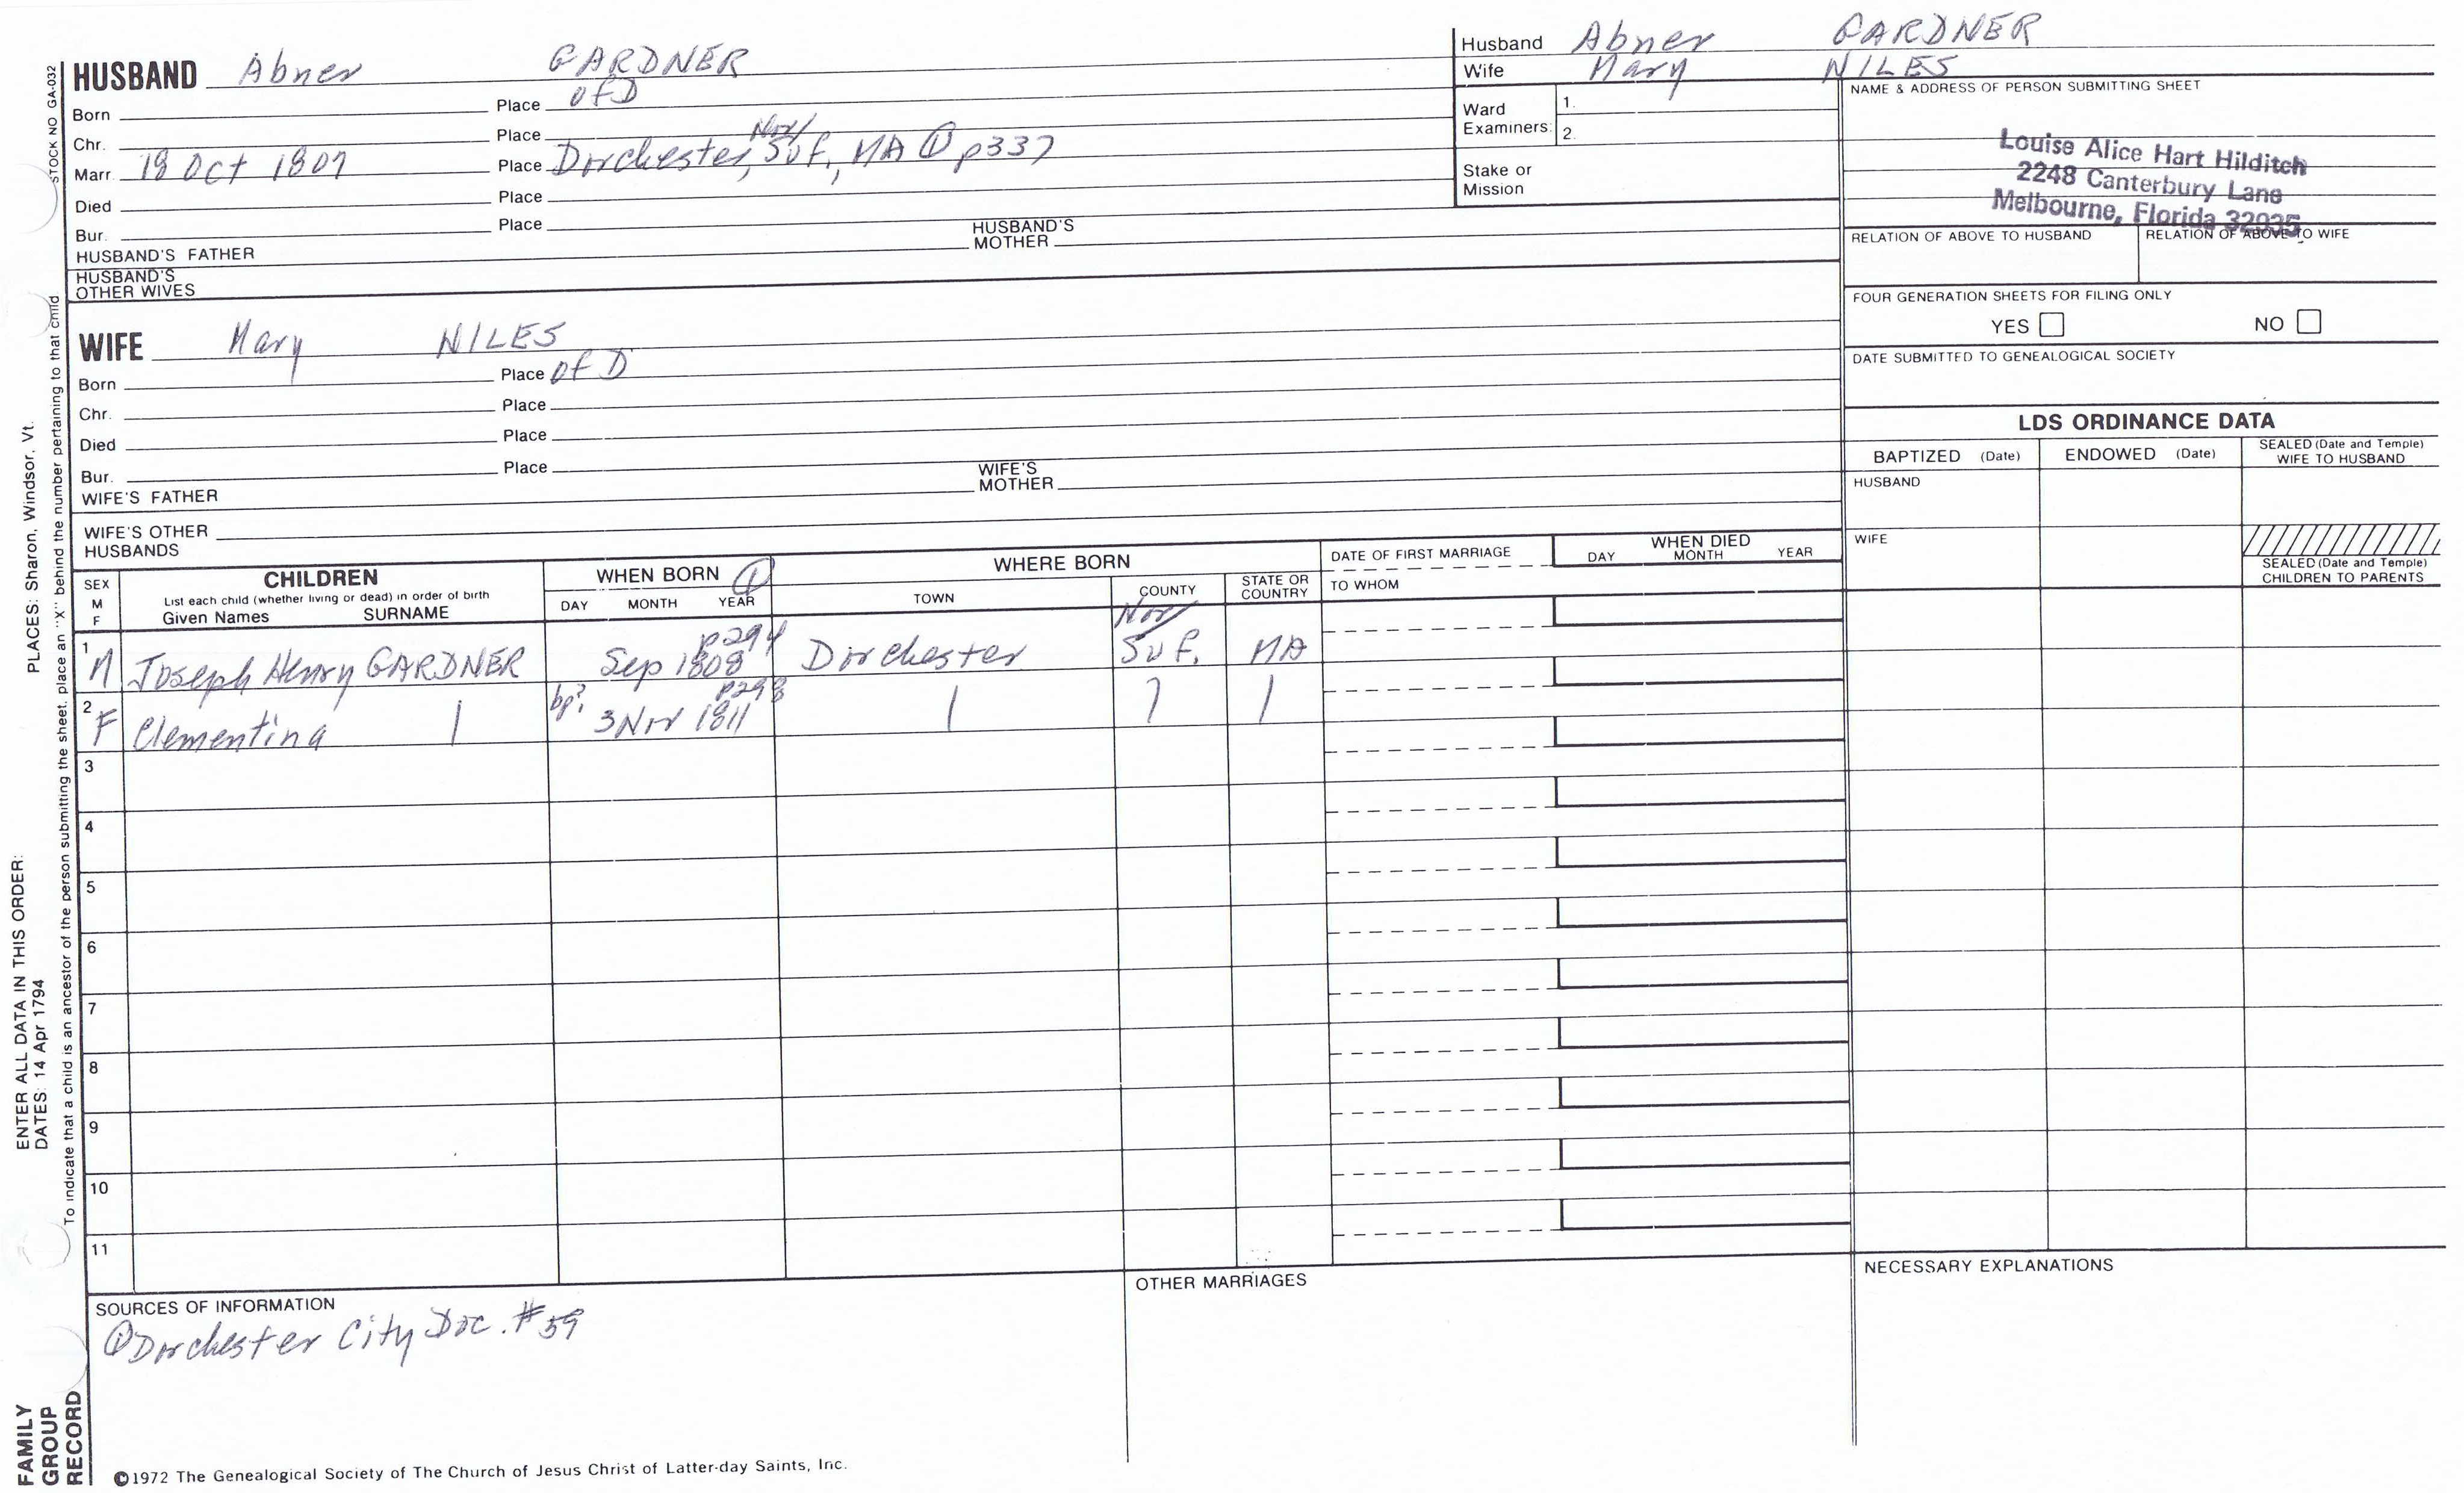 STOCK NO GA-032
HUSBAND Abner GARDNER
Born Place of D
Chr. Place
Marr. 18 Oct 1807 Place Dorchester, Nor/Suf., MA ① p337
Died Place
Bur. Place
HUSBAND'S FATHER HUSBAND'S MOTHER
HUSBAND'S OTHER WIVES
Husband Abner GARDNER
Wife Mary NILES
Ward Examiners: 1.
2.
Stake or Mission
NAME & ADDRESS OF PERSON SUBMITTING SHEET
Louise Alice Hart Hilditch
2248 Canterbury Lane
Melbourne, Florida 32935
RELATION OF ABOVE TO HUSBAND RELATION OF ABOVE TO WIFE
FOUR GENERATION SHEETS FOR FILING ONLY
YES NO
DATE SUBMITTED TO GENEALOGICAL SOCIETY
WIFE Mary NILES
Born Place of D
Chr. Place
Died Place
Bur. Place
WIFE'S FATHER WIFE'S MOTHER
WIFE'S OTHER HUSBANDS
LDS ORDINANCE DATA
BAPTIZED (Date) ENDOWED (Date) SEALED (Date and Temple) WIFE TO HUSBAND
HUSBAND
WIFE
SEALED (Date and Temple) CHILDREN TO PARENTS
SEX M F
CHILDREN
List each child (whether living or dead) in order of birth
Given Names SURNAME
WHEN BORN ①
DAY MONTH YEAR
WHERE BORN
TOWN COUNTY STATE OR COUNTRY
DATE OF FIRST MARRIAGE
TO WHOM
WHEN DIED
DAY MONTH YEAR
1 M Joseph Henry GARDNER Sep 1808 p294 Dorchester Nor/Suf. MA
2 F Clementina | bp? 3 Nov 1811 p298 | ) |
3
4
5
6
7
8
9
10
11
SOURCES OF INFORMATION
① Dorchester City Doc. #59
OTHER MARRIAGES
NECESSARY EXPLANATIONS
©1972 The Genealogical Society of The Church of Jesus Christ of Latter-day Saints, Inc.
FAMILY GROUP RECORD
ENTER ALL DATA IN THIS ORDER:
DATES: 14 Apr 1794 PLACES: Sharon, Windsor, Vt.
To indicate that a child is an ancestor of the person submitting the sheet, place an "X" behind the number pertaining to that child